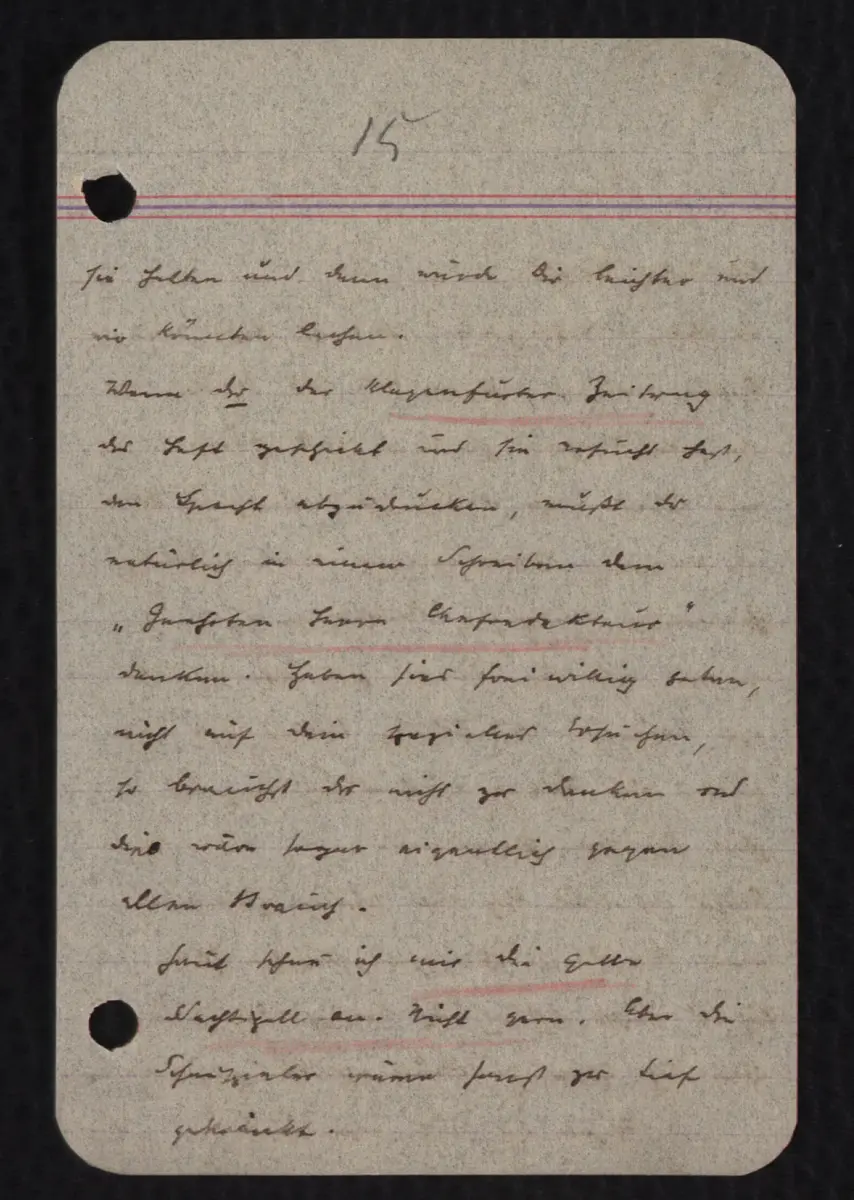 15
sie halten und dann würde Dir leichter und
wir könnten lachen.
Wenn du der Klagenfurter Zeitung
das Heft geschickt und sie ersucht hast,
den abzudrucken, mußt du
natürlich in einem Schreiben dem
„Geehrten Herrn Chefredakteur"
danken. Haben sies freiwillig getan,
nicht auf dein spezielles Ersuchen,
so brauchst du nicht zu danken und
dies wäre sogar eigentlich gegen
allen Brauch.
Heut schau ich mir die gelbe
Nachtigall an. Nicht gern. Aber die
Schauspieler wären sonst zu tief
gekränkt.